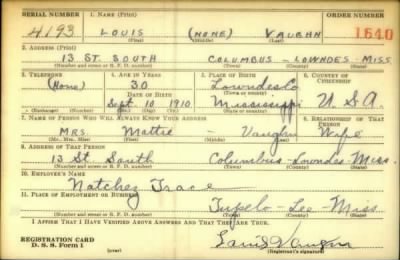 SERIAL NUMBER 1. NAME (Print) ORDER NUMBER
4193 LOUIS (NONE) VAUGHN 1640
(First) (Middle) (Last)
2. ADDRESS (Print)
13 ST. SOUTH COLUMBUS - LOWNDES - MISS.
(Number and street or R. F. D. number) (Town) (County) (State)
3. TELEPHONE 4. AGE IN YEARS 5. PLACE OF BIRTH 6. COUNTRY OF CITIZENSHIP
(None) 30 Lowndes Co
DATE OF BIRTH (Town or county)
Sept 10 1910 Mississippi U.S.A
(Exchange) (Number) (Mo.) (Day) (Yr.) (State or country)
7. NAME OF PERSON WHO WILL ALWAYS KNOW YOUR ADDRESS 8. RELATIONSHIP OF THAT PERSON
MRS. Mattie - Vaughn Wife
(Mr., Mrs., Miss) (First) (Middle) (Last)
9. ADDRESS OF THAT PERSON
13 St. South Columbus - Lowndes - Miss.
(Number and street or R. F. D. number) (Town) (County) (State)
10. EMPLOYER'S NAME
Natchez Trace
11. PLACE OF EMPLOYMENT OR BUSINESS
Tupelo Lee Miss.
(Number and street or R. F. D. number) (Town) (County) (State)
I AFFIRM THAT I HAVE VERIFIED ABOVE ANSWERS AND THAT THEY ARE TRUE.
REGISTRATION CARD
D. S. S. Form 1 Louis Vaughn
(Registrant's signature)